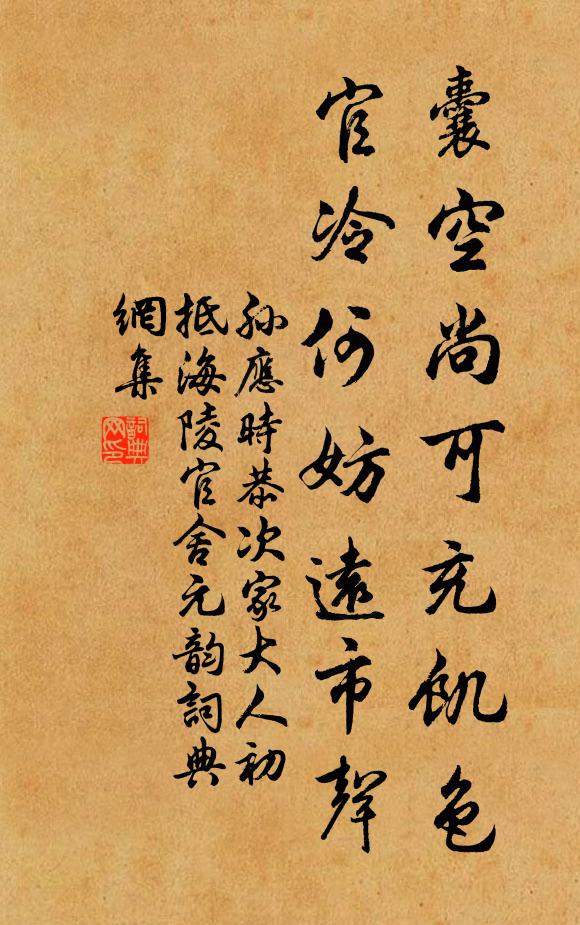 囊空尚可充飢色
官冷何妨遠市聲
孫應時恭次家大人初
抵海陵官舍元韵詞典
網集
詞典
网印